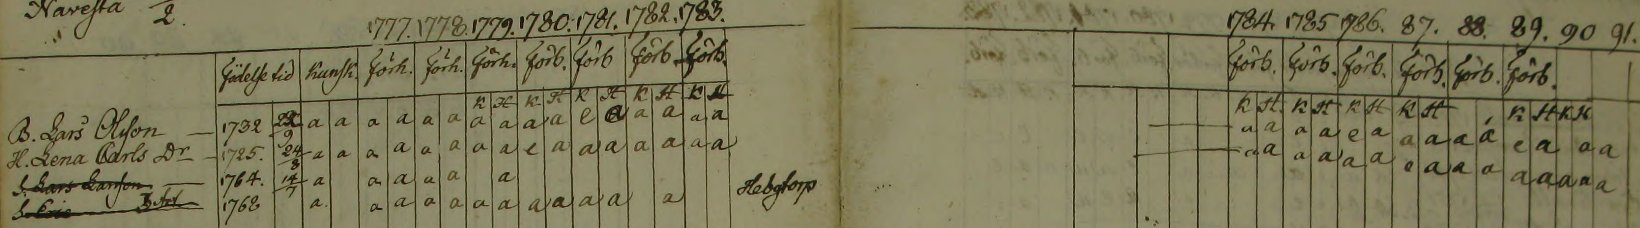 Navesta 2.
1777. 1778. 1779. 1780. 1781. 1782. 1783. 1784. 1785 1786. 87. 88. 89. 90 91.
födelse tid kunsk. förh. förh. förh. förb. förb förb. förb. förb. förb. förb. förb. förb. förb.
K H K H K H K H K H K H K H K H K H K H K H
B. Lars Olsson 1732 22/9 a a a a a a a a a a e a a a a a a a a e a a a a a e a a a
H. Lena Carls Dr 1725. 24/3 a a a a a a a a e a a a a a a a a a a a a e a a a a a a a
S. Lars Larsson 1764. 14/7 a a a a a a
S. Eric 1762 a. a a a a a a a a a a a Hebytorp